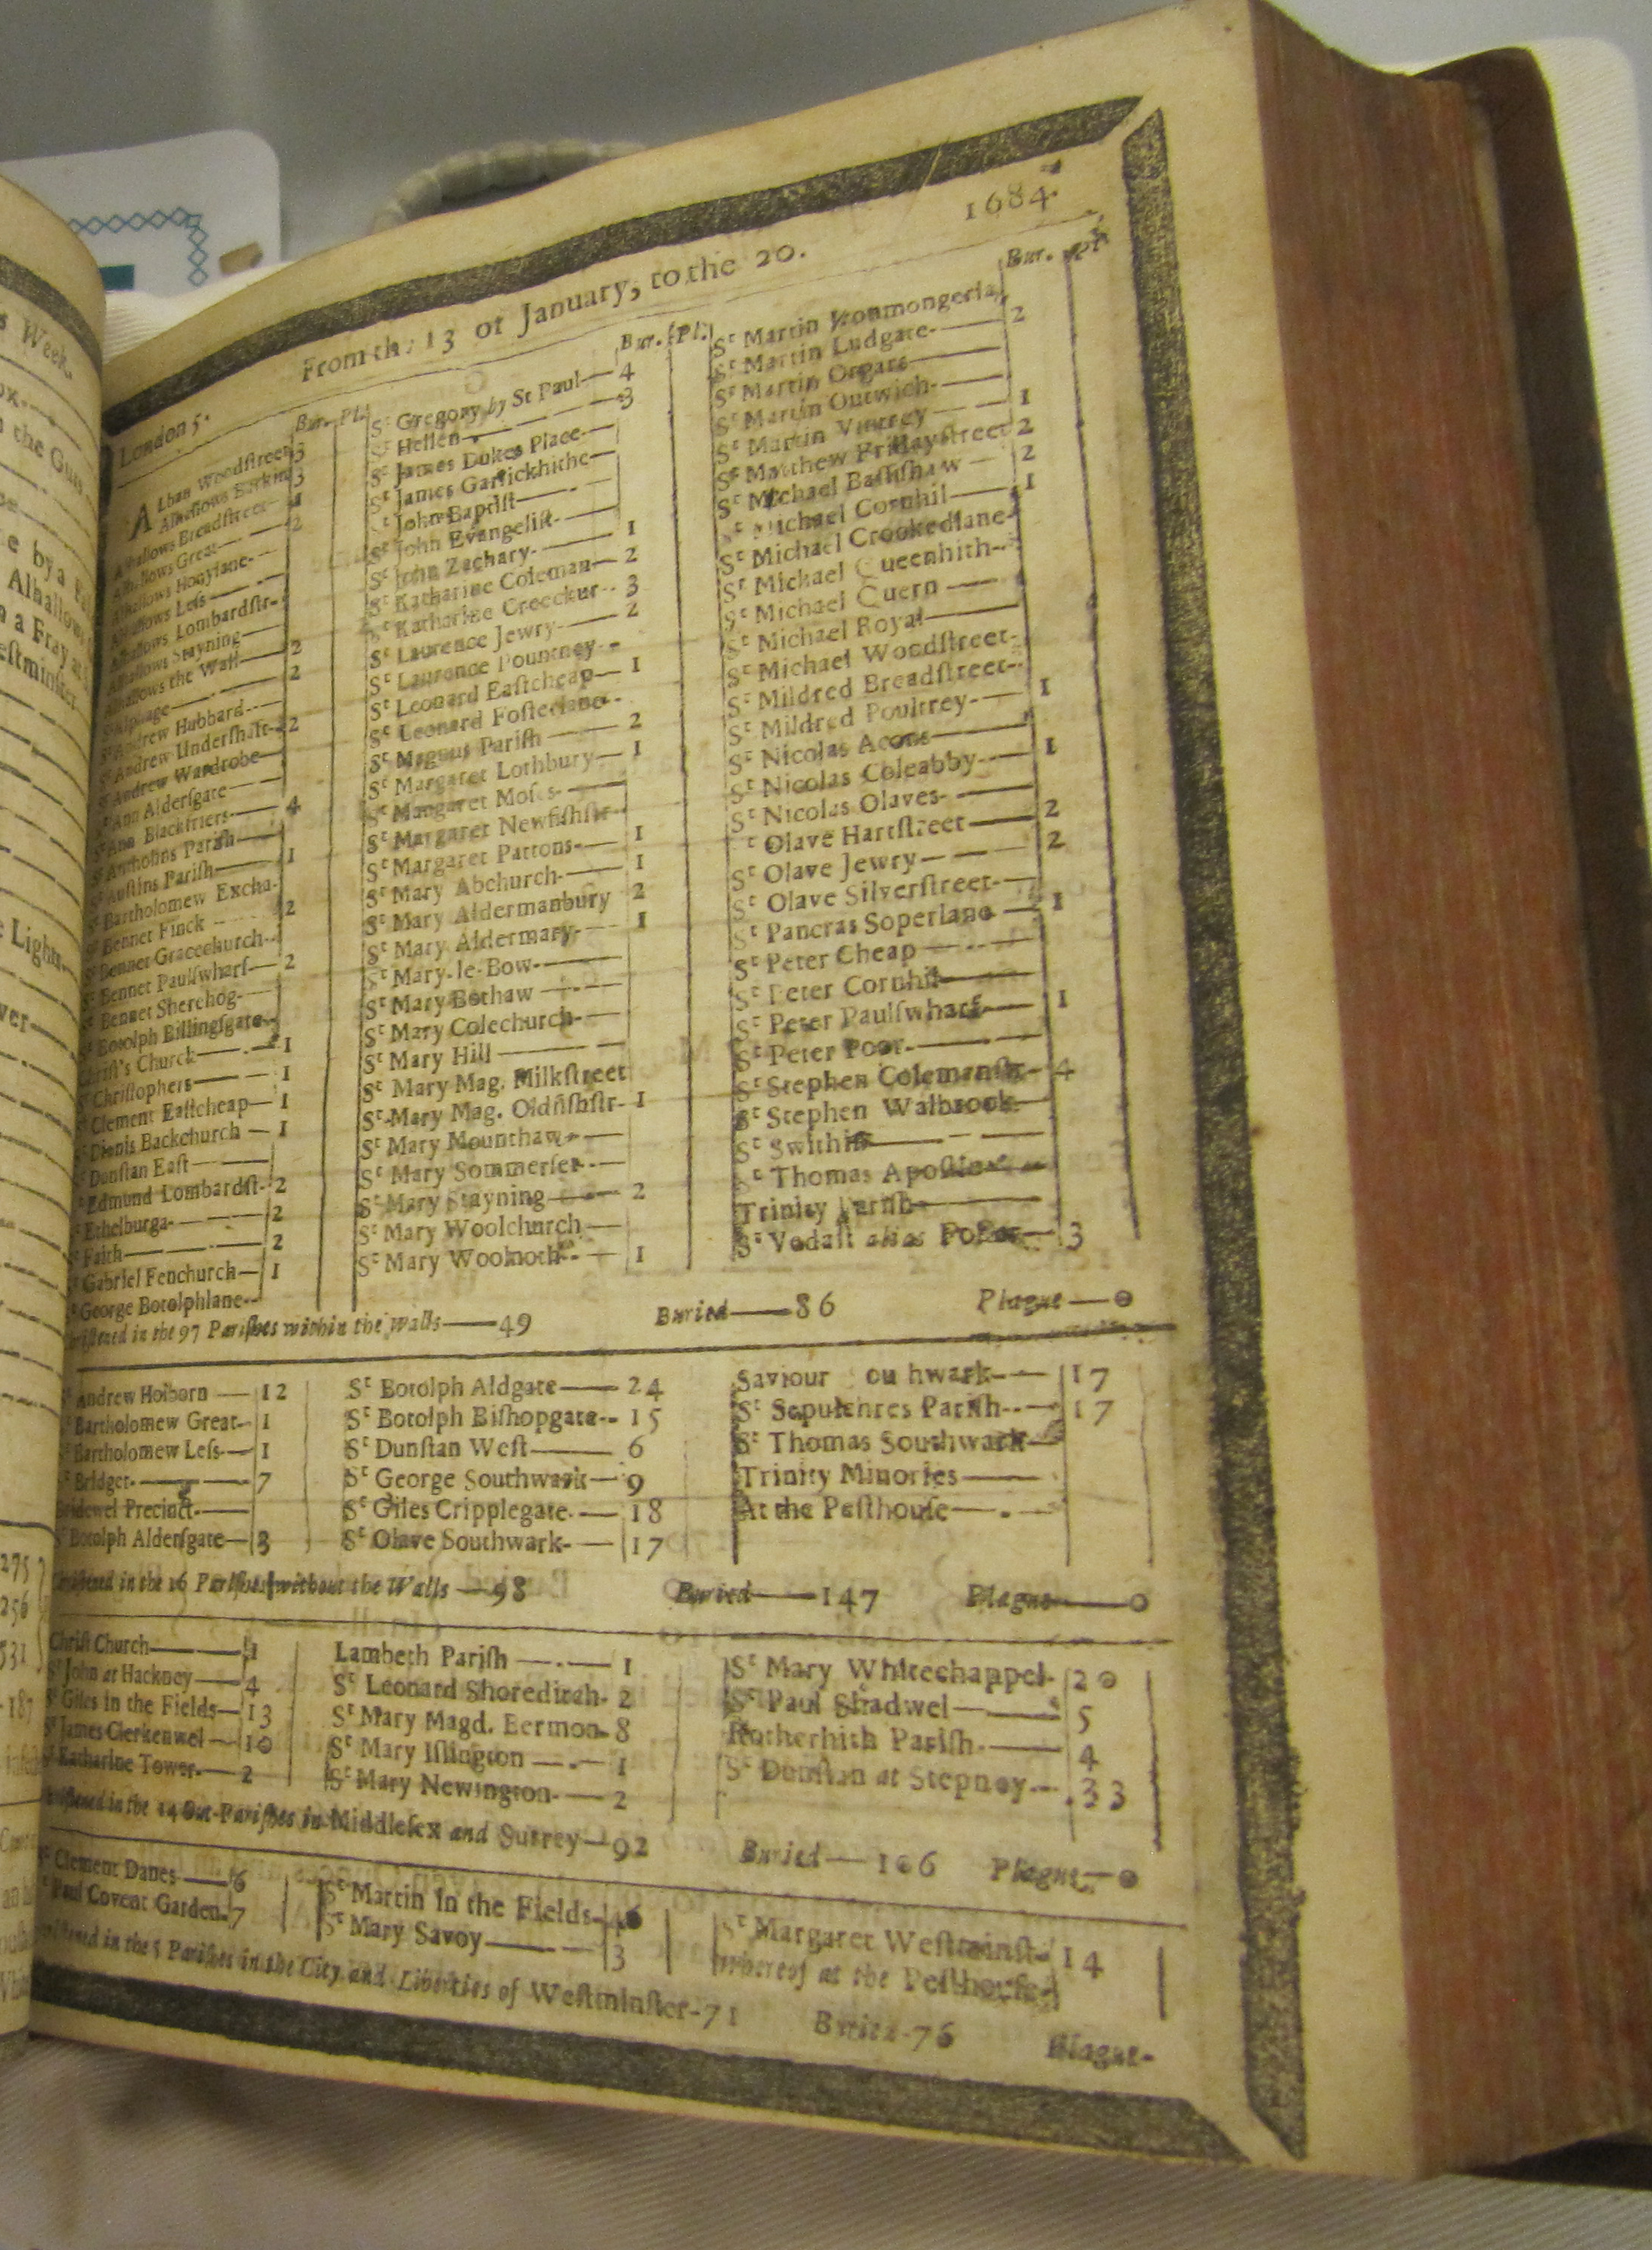 s Week.
the Guts
e by a Fal
Alhallows
a Fray at
estminster
Light
ver
275
256
531
187
From the 13 of January, to the 20. 1684
London 5. Bur. Pl.
Alban Woodſtreet 3
Alhallows Barkin 3
Alhallows Breadſtreet 1
Alhallows Great 2
Alhallows Honylane
Alhallows Leſs
Alhallows Lombardſtr
Alhallows Stayning
Alhallows the Wall 2
St Alphage 2
St Andrew Hubbard
St Andrew Underſhaft 2
St Andrew Wardrobe
St Ann Alderſgate
St Ann Blackfriers 4
St Antholins Pariſh
St Auſtins Pariſh 1
St Bartholomew Excha.
St Bennet Finck 2
St Bennet Gracechurch
St Bennet Paulſwharf 2
St Bennet Sherehog
St Botolph Billingſgate
Chriſt's Church 1
St Chriſtophers 1
St Clement Eaſtcheap 1
St Dionis Backchurch 1
St Dunſtan Eaſt
St Edmund Lombardſt. 2
St Ethelburga 2
St Faith 2
St Gabriel Fenchurch 1
St George Botolphlane
Bur. Pl.
St Gregory by St Paul 4
St Hellen 3
St James Dukes Place
St James Garlickhithe
St John Baptiſt
St John Evangeliſt
St John Zachary 1
St Katharine Coleman 2
St Katharine Creechur 3
St Laurence Jewry 2
St Laurence Pountney
St Leonard Eaſtcheap 1
St Leonard Foſterlane
St Magnus Pariſh 2
St Margaret Lothbury 1
St Margaret Moſes
St Margaret Newfiſhſtr
St Margaret Pattons 1
St Mary Abchurch 1
St Mary Aldermanbury 2
St Mary Aldermary 1
St Mary-le-Bow
St Mary Bothaw
St Mary Colechurch
St Mary Hill
St Mary Mag. Milkſtreet
St Mary Mag. Oldfiſhſtr 1
St Mary Mounthaw
St Mary Sommerſet
St Mary Stayning 2
St Mary Woolchurch
St Mary Woolnoth 1
Bur. Pl
St Martin Ironmongerla
St Martin Ludgate 2
St Martin Orgars
St Martin Outwich
St Martin Vintrey 1
St Matthew Fridayſtreet 2
St Michael Baſſiſhaw 2
St Michael Cornhil 1
St Michael Crookedlane
St Michael Queenhith
St Michael Quern
St Michael Royal
St Michael Woodſtreet
St Mildred Breadſtreet
St Mildred Poultrey 1
St Nicolas Acons
St Nicolas Coleabby 1
St Nicolas Olaves
St Olave Hartſtreet 2
St Olave Jewry 2
St Olave Silverſtreet
St Pancras Soperlane 1
St Peter Cheap
St Peter Cornhil
St Peter Paulſwharf 1
St Peter Poor
St Stephen Colemanſtr 4
St Stephen Walbrook
St Swithin
St Thomas Apoſtle
Trinity Pariſh
St Vedaſt alias Foſter 3
Chriſtened in the 97 Pariſhes within the walls 49 Buried 86 Plague 0
St Andrew Holborn 12
St Bartholomew Great 1
St Bartholomew Leſs 1
St Bridget 7
Bridewel Precinct
St Botolph Alderſgate 3
St Botolph Aldgate 24
St Botolph Biſhopgate 15
St Dunſtan Weſt 6
St George Southwark 9
St Giles Cripplegate 18
St Olave Southwark 17
Saviour Southwark 17
St Sepulchres Pariſh 17
St Thomas Southwark
Trinity Minories
At the Peſthouſe
Chriſtened in the 16 Pariſhes without the Walls 98 Buried 147 Plague 0
Chriſt Church 1
St John at Hackney 4
St Giles in the Fields 13
St James Clerkenwel 10
St Katharine Tower 2
Lambeth Pariſh 1
St Leonard Shoreditch 2
St Mary Magd. Bermon 8
St Mary Iſlington 1
St Mary Newington 2
St Mary Whitechappel 20
St Paul Shadwel 5
Rotherhith Pariſh 4
St Dunſtan at Stepney 33
Chriſtened in the 14 Out-Pariſhes in Middleſex and Surrey 92 Buried 106 Plague 0
St Clement Danes 6
St Paul Covent Garden 7
St Martin in the Fields 46
St Mary Savoy 3
St Margaret Weſtminſt 14
Whereof at the Peſthouſe
Chriſtened in the 5 Pariſhes in the City and Liberties of Weſtminſter-71 Buried-76 Plague-